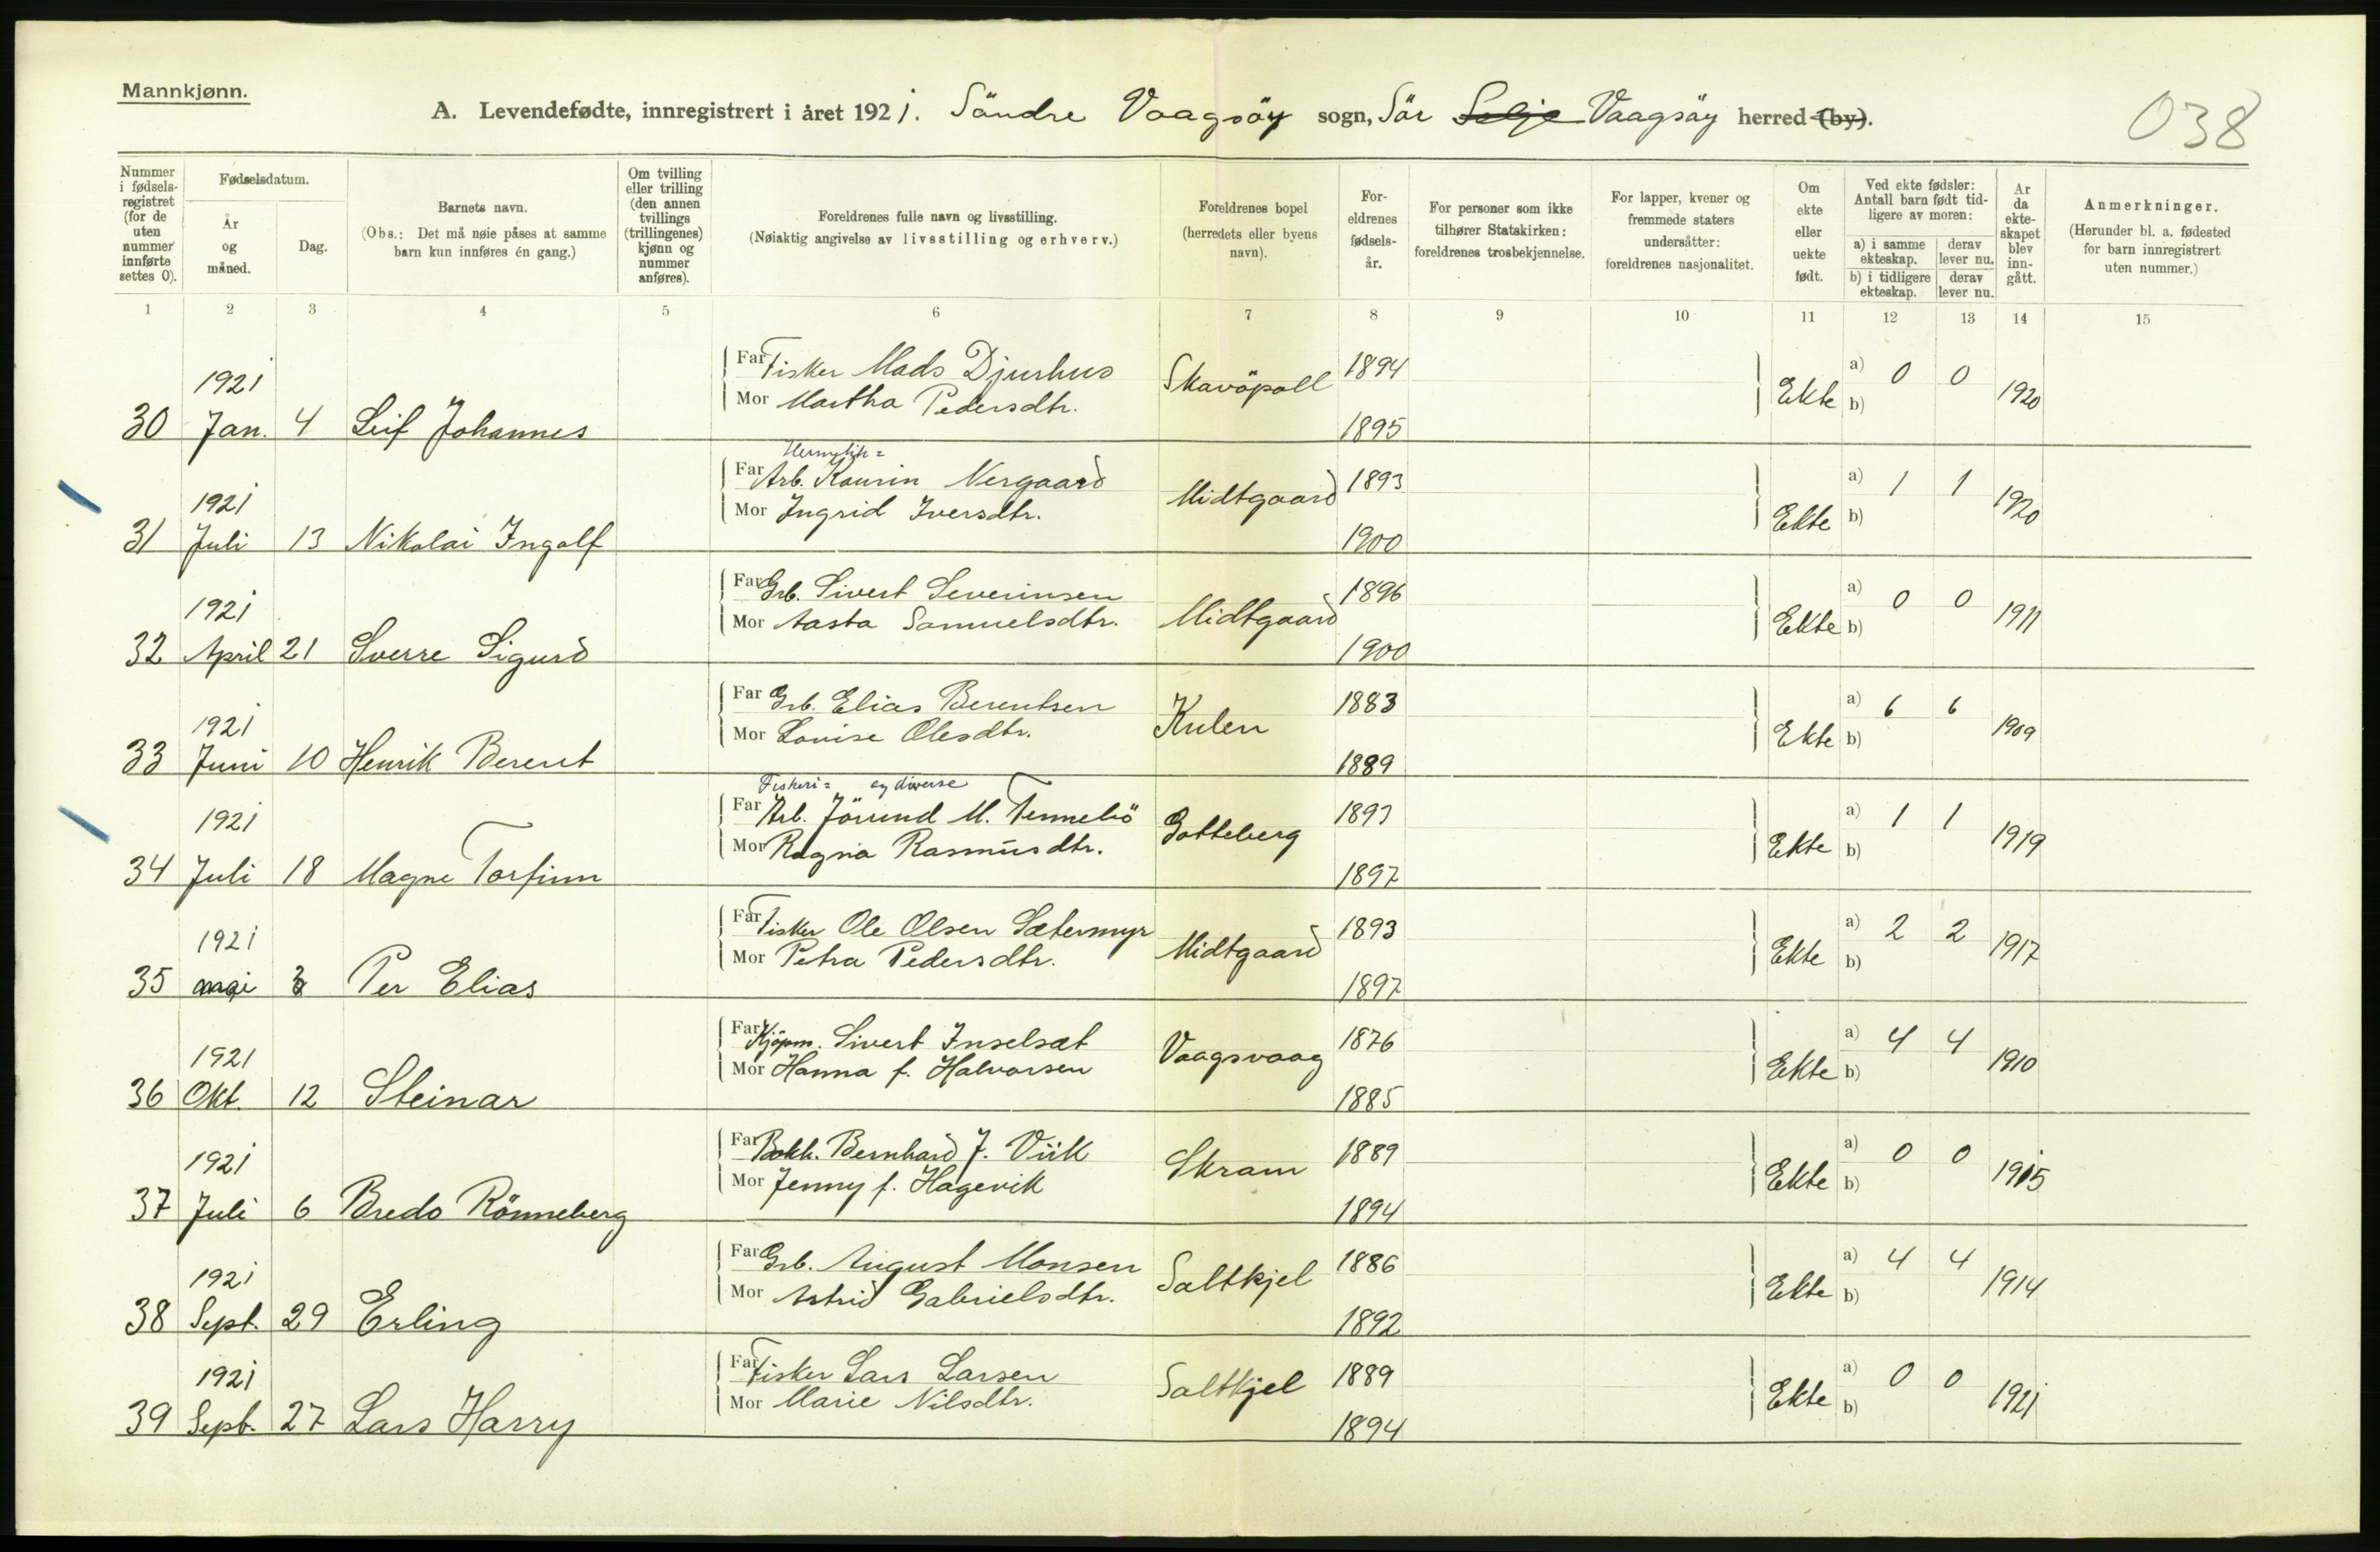 Mannkjønn.
A. Levendefødte, innregistrert i året 1921. Söndre Vaagsöy sogn, Sör Selje Vaagsöy herred (by).
038
Nummer i fødselsregistret (for de uten nummer innførte settes 0).
Fødselsdatum.
År og måned.
Dag.
Barnets navn.
(Obs.: Det må nøie påses at samme barn kun innføres én gang.)
Om tvilling eller trilling (den annen tvillings (trillingenes) kjønn og nummer anføres).
Foreldrenes fulle navn og livsstilling.
(Nøiaktig angivelse av livsstilling og erhverv.)
Foreldrenes bopel (herredets eller byens navn).
Foreldrenes fødselsår.
For personer som ikke tilhører Statskirken: foreldrenes trosbekjennelse.
For lapper, kvener og fremmede staters undersåtter: foreldrenes nasjonalitet.
Om ekte eller uekte født.
Ved ekte fødsler: Antall barn født tidligere av moren:
a) i samme ekteskap. derav lever nu.
b) i tidligere ekteskap. derav lever nu.
År da ekteskapet blev inngått.
Anmerkninger.
(Herunder bl. a. fødested for barn innregistrert uten nummer.)
1 2 3 4 5 6 7 8 9 10 11 12 13 14 15
Far Fisker Mads Djurhus 1894
1921 Skavöpoll a) 0 0
Mor Martha Pedersdtr. Ekte b) 1920
30 Jan. 4 Leif Johannes 1895
Far Arb. Kaurin Nergaard 1893
1921 Midtgaard a) 1 1
Mor Ingrid Iversdtr. Ekte b) 1920
31 Juli 13 Nikolai Ingolf 1900
Far Grb. Sivert Severinsen 1896
1921 Midtgaard a) 0 0
Mor Aasta Samuelsdtr. Ekte b) 1911
32 April 21 Sverre Sigurd 1900
Far Grb. Elias Berentsen 1883
1921 Kulen a) 6 6
Mor Lovise Olesdtr. Ekte b) 1909
33 Juni 10 Henrik Berent 1889
Fiskeri= og diverse
Far Arb. Jörund M. Tennebö 1893
1921 Gotteberg a) 1 1
Mor Ragna Rasmusdtr. Ekte b) 1919
34 Juli 18 Magne Torfinn 1897
Far Fisker Ole Olsen Sætermyr 1893
1921 Midtgaard a) 2 2
Mor Petra Pedersdtr. Ekte b) 1917
35 mai 3 Per Elias 1897
Far Kjöpm. Sivert Inselsæt 1876
1921 Vaagsvaag a) 4 4
Mor Hanna f. Halvorsen Ekte b) 1910
36 Okt. 12 Steinar 1885
Far Bokh. Bernhard J. Viik 1889
1921 Skram a) 0 0
Mor Jenny f. Hagevik Ekte b) 1915
37 Juli 6 Bredo Rönneberg 1894
Far Grb. August Monsen 1886
1921 Saltkjel a) 4 4
Mor Astrid Gabrielsdtr. Ekte b) 1914
38 Sept. 29 Erling 1892
Far Fisker Lars Larsen 1889
1921 Saltkjel a) 0 0
Mor Marie Nilsdtr. Ekte b) 1921
39 Sept. 27 Lars Harry 1894